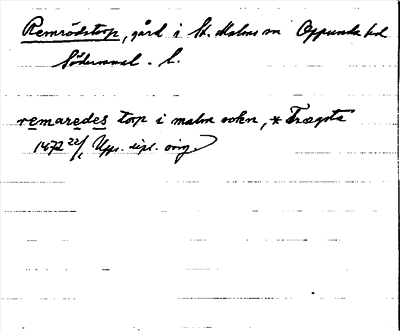 Remrödstorp, gård i St. Malms sn Oppunda hd
Södermanl. l.
remaredes torp i malm sokn, *
1472 22/1 Upps. dipl. orig